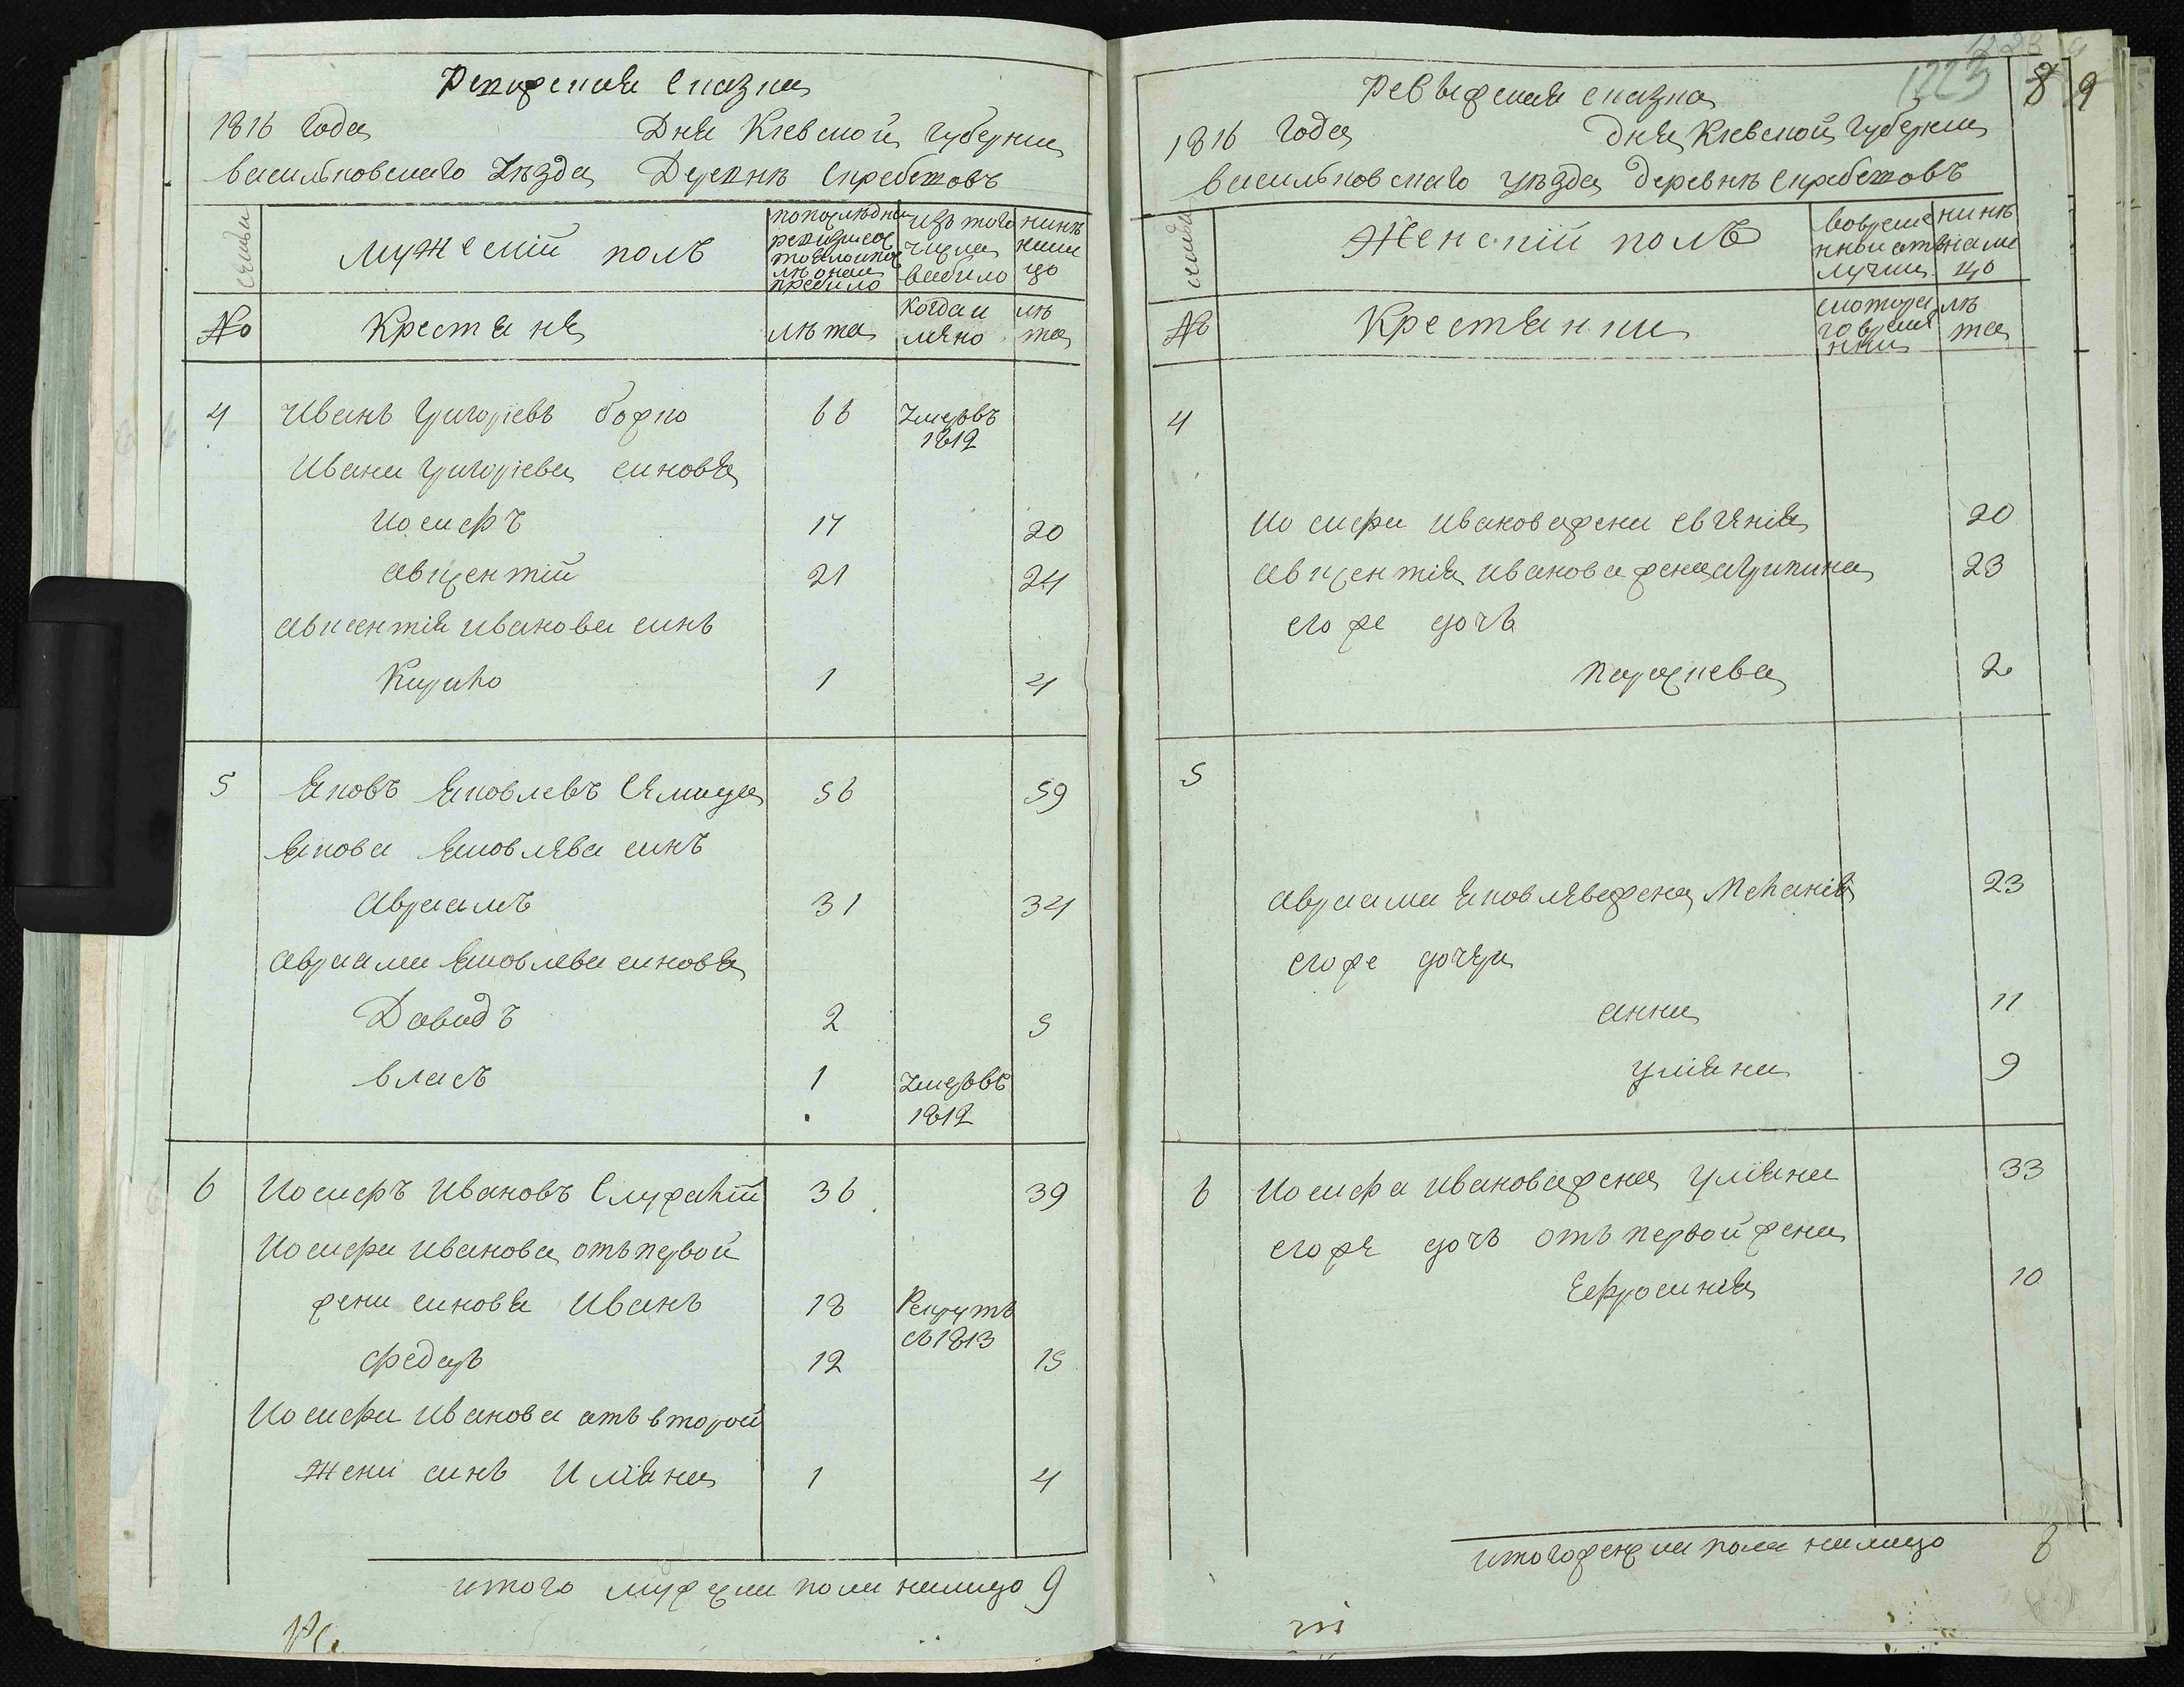 Ревизская Сказка
1816 года Дня Киевской Губернии
Васильковскаго Уезда Деревне Скребетовъ
семьи
Мужескій полъ
изъ того числа выбыло
нине на лицо
№
Крестяня
лѣта
когда и
лѣта
4 Иванъ Григоріевъ Борко 66 Умеръ въ 1812
Ивана Григоріева синовя
Иосифъ 17 20
Авксентій 21 24
Авксентія Иванова синъ
Кирило 1 4
5 Яковъ Яковлевъ 56 59
Якова Яковлева синъ
Авраамъ 31 34
Авраама Яковлева синовя
Давидъ 2 5
Власъ 1 Умеръ въ 1812
6 Иосифъ Ивановъ 36 39
Иосифа Иванова отъ первой
жени синовя Иванъ 18 Рекрутъ съ 1813
Федоръ 12 15
Иосифа Иванова отъ второй
жени синъ Иляна 1 4
итого мужеска пола налицо 9
1223
8 9
Ревизская сказка
1816 Года Дня Киевской Губернии
Васильковскаго уезда деревне Скребетовъ
семьи
Женскій полъ
нине на лицо
№
Крестянки
лѣта
4
Иосифа Иванова жена Евгения 20
Авксентія Иванова жена Агрипина 23
его же дочъ
Параскева 2
5
Авраама Яковлева жена Меланія 23
его же дочери
Анна 11
Уляна 9
6 Иосифа Иванова жена Уліяна 33
его же дочъ отъ первой жени
Ефросинія 10
итого женска пола налицо 8